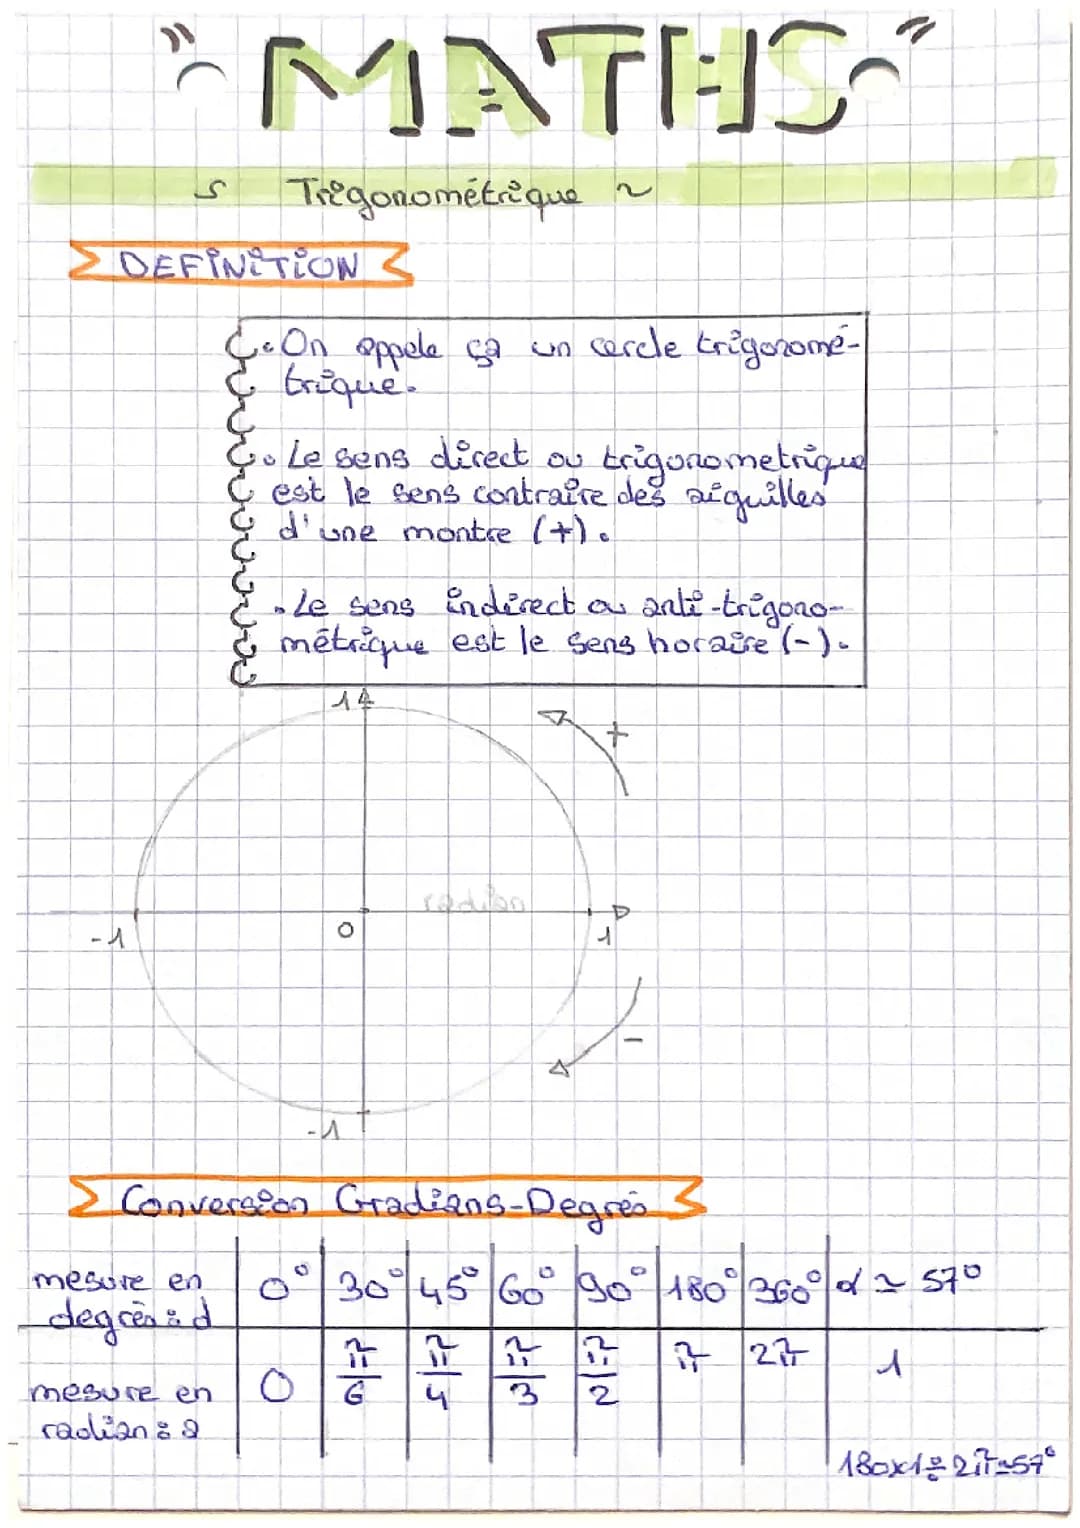 " MATHS "
~ Trigonométrique ~
DEFINITION
• On appele ça un cercle trigonomé-
trique.
• Le sens direct ou trigonometrique
est le sens contraire des aiguilles
d'une montre (+).
• Le sens indirect ou anti-trigono-
métrique est le sens horaire (-).
1
+
radian
-1 0 1
-
-1
Conversion Gradians-Degrés
mesure en degrès : d 0° 30° 45° 60° 90° 180° 360° α ≃ 57°
mesure en radian : a 0 π/6 π/4 π/3 π/2 π 2π 1
180×1÷2π≃57°